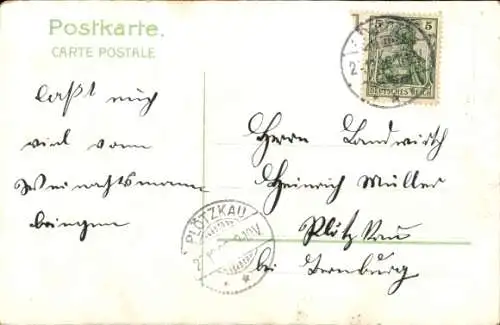 Postkarte.
CARTE POSTALE
5 5
DEUTSCHES REICH
laßt mich
viel vom
Weinachtsmann
bringen
Herrn Landwirth
Heinrich Müller
Plötzkau
bei Bernburg
PLÖTZKAU